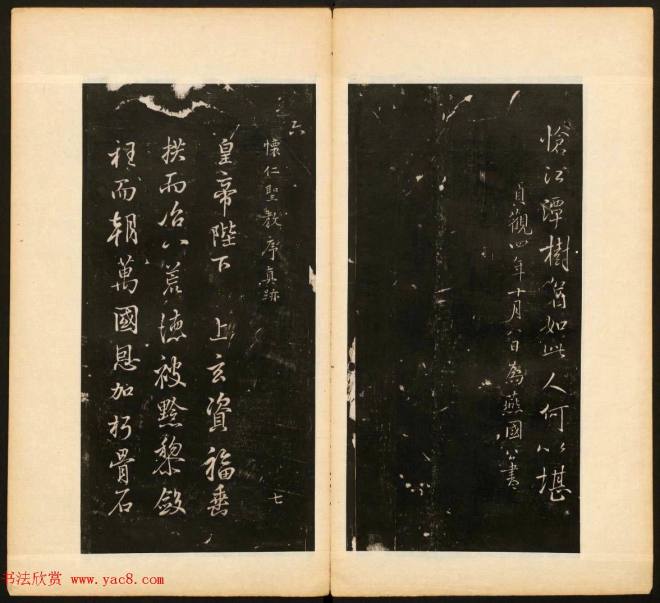 愴江潭樹猶如此人何以堪
貞觀四年十月八日為燕國公書
六
懷仁聖教序真跡
七
皇帝陛下 上玄資福垂
拱而治八荒德被黔黎斂
衽而朝萬國恩加朽骨石
书法欣赏 www.yac8.com